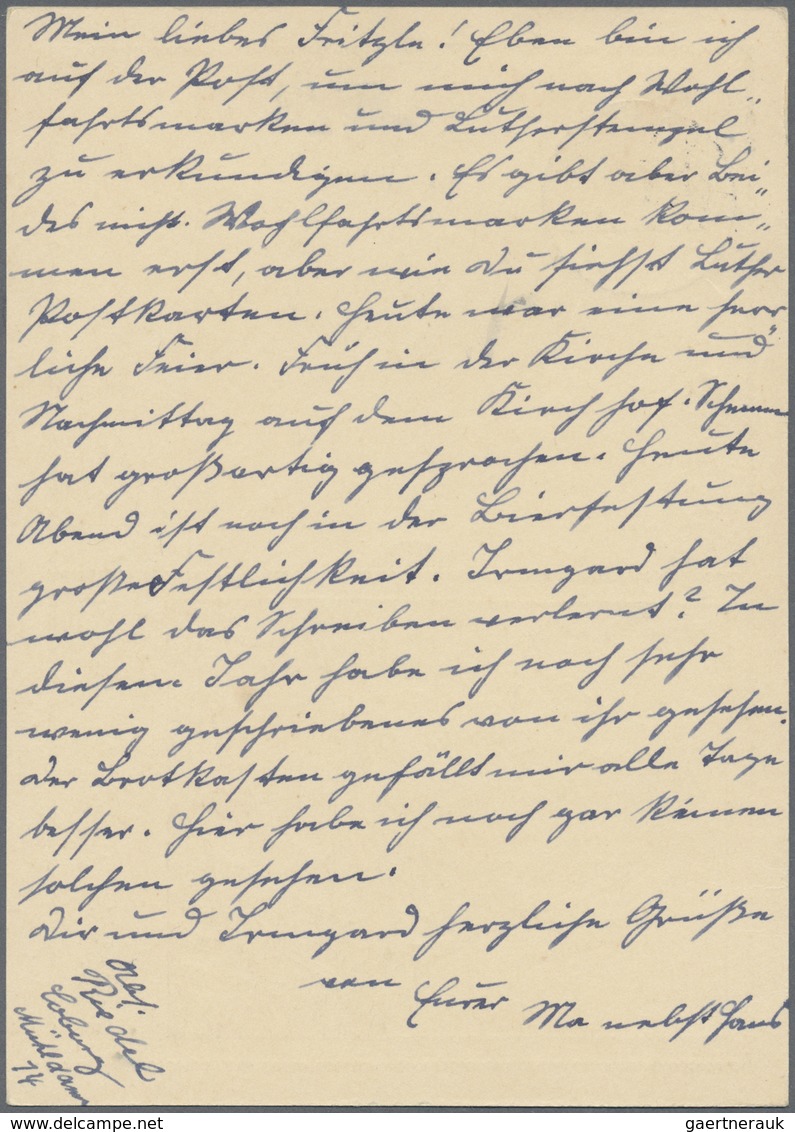 Mein liebes Fritzle! Eben bin ich
auf der Post, um mich nach Wohl„
fahrtsmarken und Lutherstempel
zu erkundigen. Es gibt aber Bei„
des nicht. Wohlfahrtsmarken kom„
men erst, aber wie Du siehst Luther
Postkarten. Heute war eine herr„
liche Feier. Früh in der Kirche und
Nachmittag auf dem Kirchhof. Schemm
hat großartig gesprochen. Heute
Abend ist noch in der Bierfestung
große Festlichkeit. Irmgard hat
wohl das Schreiben verlernt? In
diesem Jahr habe ich noch sehr
wenig geschriebenes von ihr gesehen.
Der Brotkasten gefällt mir alle Tage
besser. Hier habe ich noch gar keinen
solchen gesehen.
Dir und Irmgard herzliche Grüße
von Eurer Ma nebst Hans
Abs.
Riedel
Coburg
Mühldamm
14
gaertnerauk